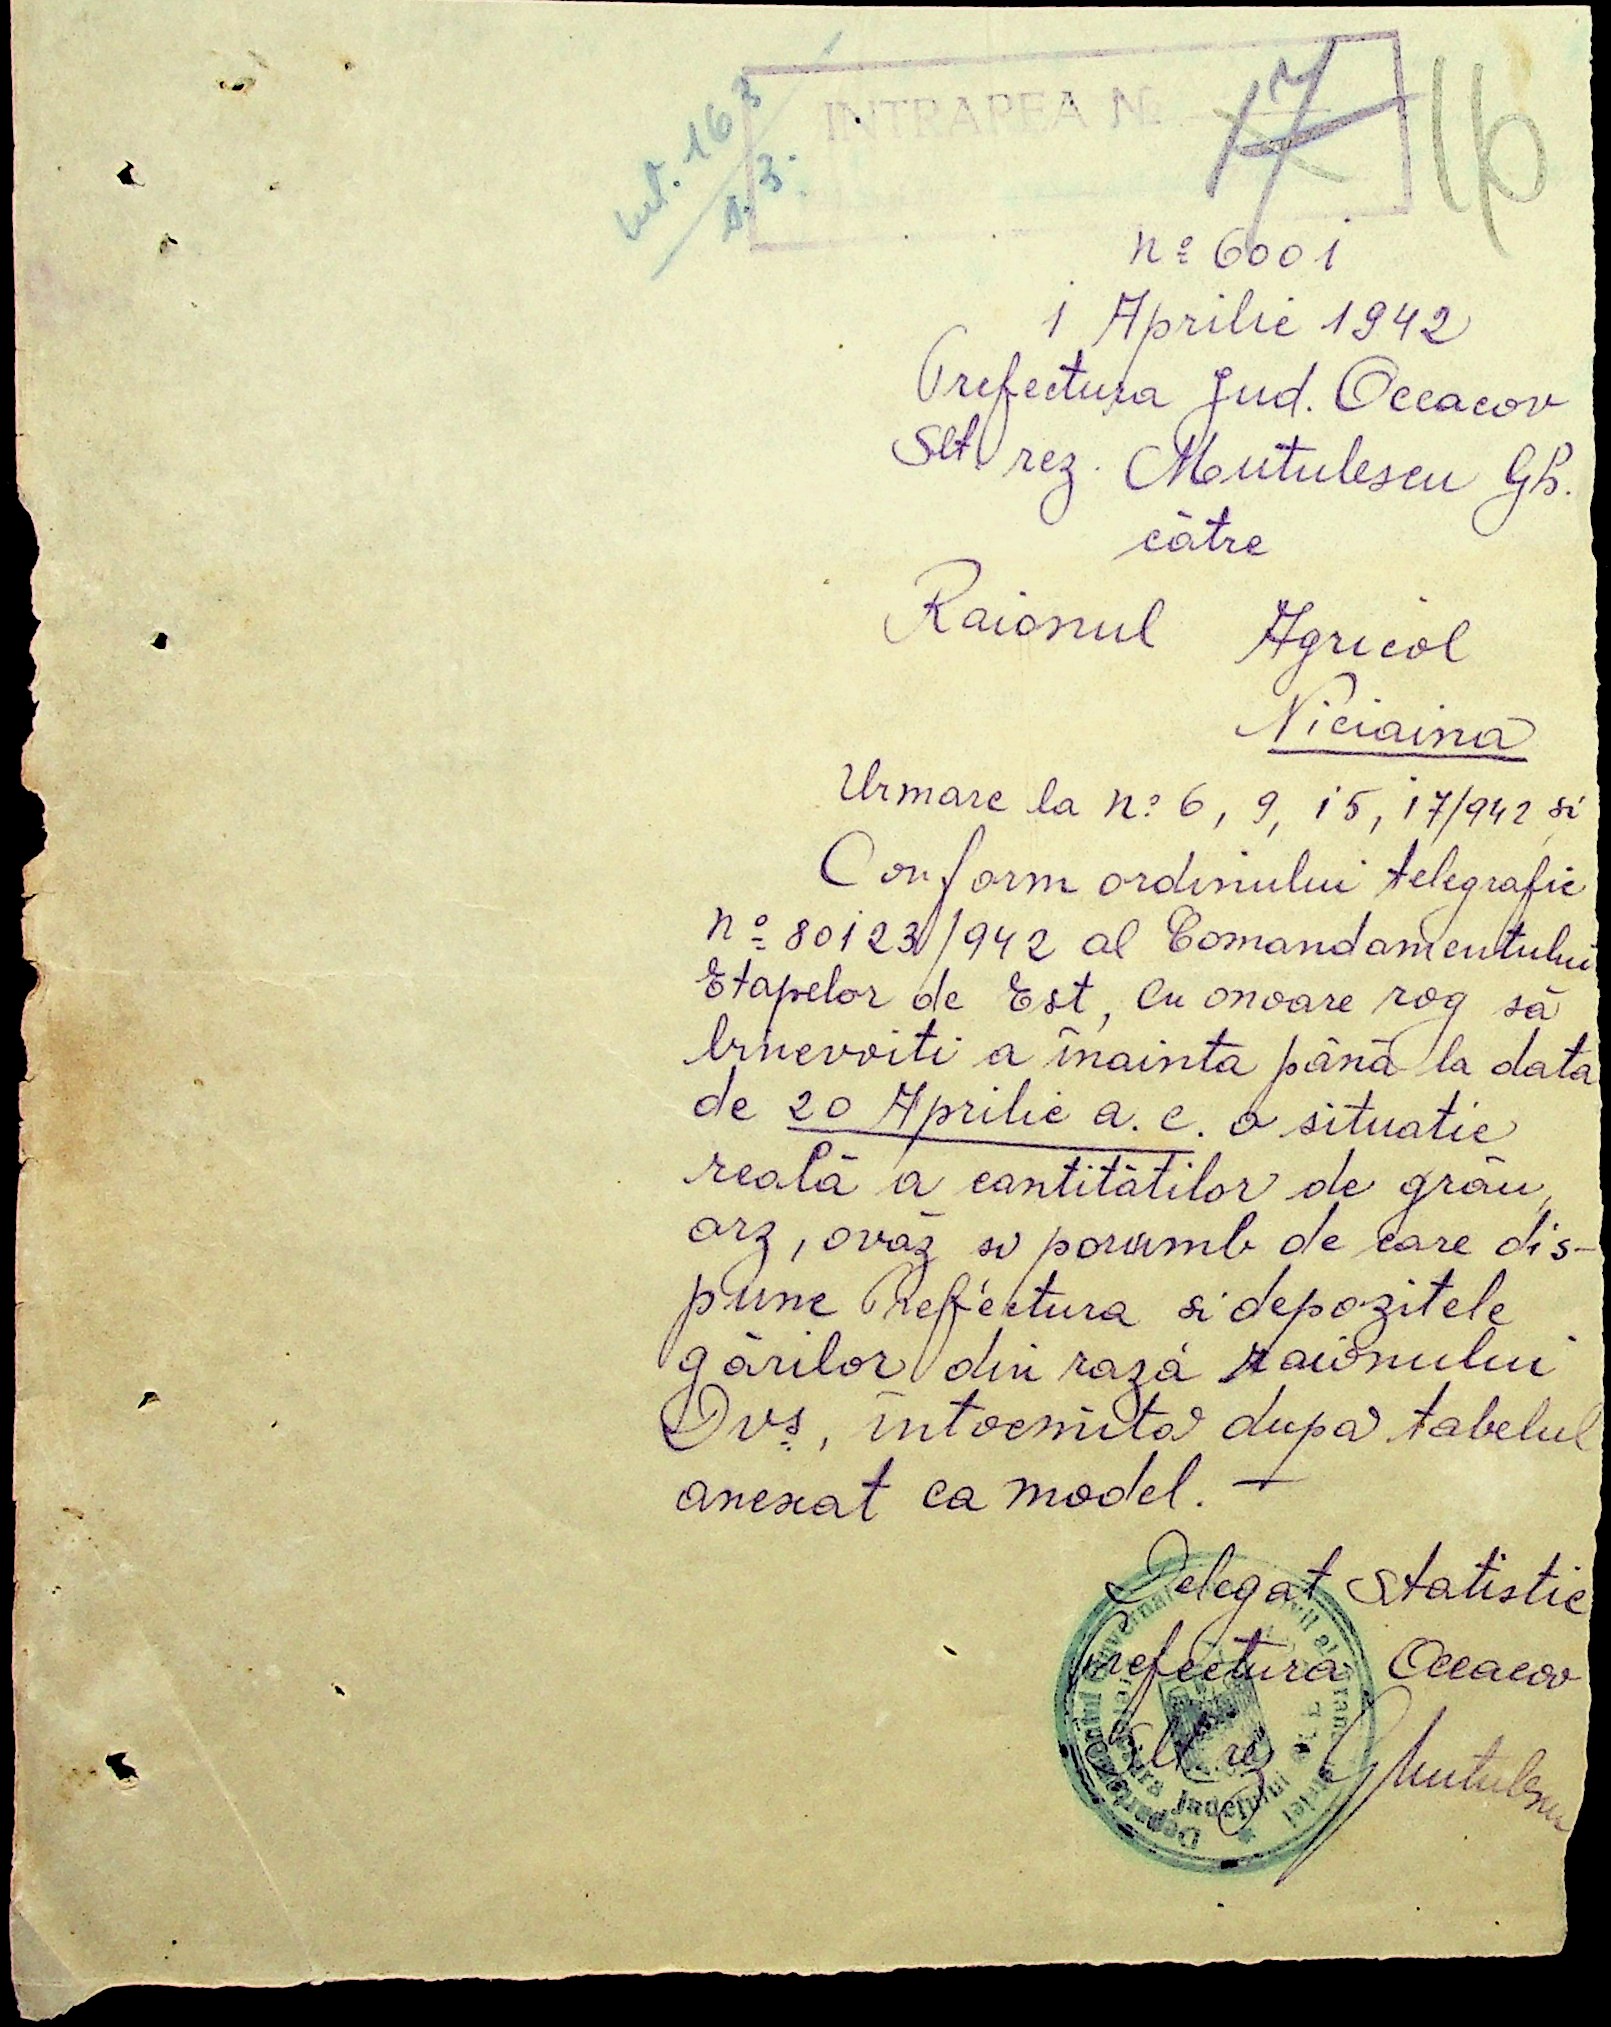 INTRAREA Nr. 17
16
No 6001
1 Aprilie 1942
Prefectura Jud. Oceacov
Slt. rez. Mutulescu Gh.
către
Raionul Agricol
Niciaina
Urmare la no. 6, 9, 15, 17/942 si
Conform ordinului telegrafic
no 80123/942 al Comandamentului
Etapelor de Est, cu onoare rog să
binevoiti a înainta până la data
de 20 Aprilie a. c. o situatie
reală a cantitătilor de grâu,
orz, ovăz si porumb de care dis-
pune Prefectura si depozitele
gărilor din raza raionului
Dvs, întocmita dupa tabelul
anexat ca model. —
Delegat Statistic
Prefectura Oceacov
Slt. rez. GMutulescu